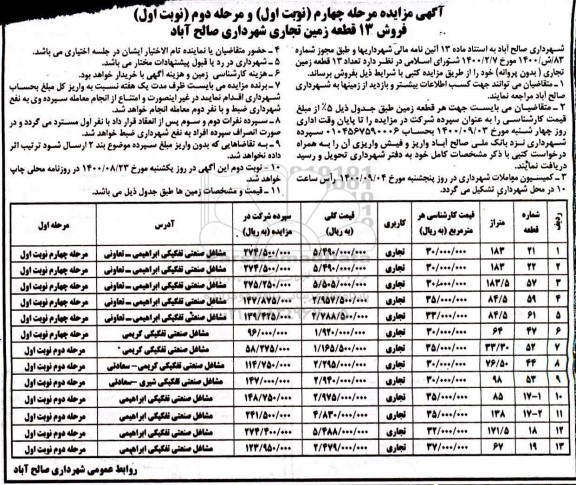 آگهی مزایده مرحله چهارم (نوبت اول) و مرحله دوم (نوبت اول)
فروش ۱۳ قطعه زمین تجاری شهرداری صالح آباد
شهرداری صالح آباد به استناد ماده ۱۳ آئین نامه مالی شهرداریها و طبق مجوز شماره
۸۳/ش/۱۴۰۰ مورخ ۱۴۰۰/۲/۷ شورای اسلامی در نظر دارد تعداد ۱۳ قطعه زمین
تجاری ( بدون پروانه) خود را از طریق مزایده کتبی با شرایط ذیل بفروش برساند.
۱- متقاضیان می توانند جهت کسب اطلاعات بیشتر و بازدید از زمینها به شهرداری
صالح آباد مراجعه نمایند.
۲- متقاضیان می بایست جهت هر قطعه زمین طبق جدول ذیل ۵٪ از مبلغ
قیمت کارشناسی را به عنوان سپرده شرکت در مزایده را تا پایان وقت اداری
روز چهار شنبه مورخ ۱۴۰۰/۰۹/۰۳ بحساب ۰۱۰۴۵۶۷۵۹۰۰۰۶ سپرده
شهرداری نزد بانک ملی صالح آباد واریز و فیش واریزی آن را به همراه
درخواست کتبی با ذکر مشخصات کامل خود به دفتر شهرداری تحویل و رسید
دریافت نمایند.
۳- کمیسیون معاملات شهرداری در روز پنجشنبه مورخ ۱۴۰۰/۰۹/۰۴ رأس ساعت
۱۰ در محل شهرداری تشکیل می گردد.
۴- حضور متقاضیان یا نماینده تام الاختیار ایشان در جلسه اختیاری می باشد.
۵- شهرداری در رد یا قبول پیشنهادات مختار می باشد.
۶- هزینه کارشناسی زمین و هزینه آگهی با خریدار خواهد بود.
۷- برنده مزایده می بایست ظرف مدت یک هفته نسبت به واریز کل مبلغ بحساب
شهرداری اقدام نمایند در غیر اینصورت و امتناع از انجام معامله سپرده وی به نفع
شهرداری ضبط و با نفر دوم معامله انجام خواهد شد.
۸- سپرده نفرات دوم و سوم پس از انعقاد قرار داد با نفر اول مسترد می گردد و در
صورت انصراف سپرده افراد به نفع شهرداری ضبط خواهد شد.
۹- به تقاضاهایی که بدون واریز مبلغ سپرده موضوع بند ۲ ارسال شود ترتیب اثر
داده نخواهد شد.
۱۰- نوبت دوم این آگهی در روز یکشنبه مورخ ۱۴۰۰/۰۸/۲۳ در روزنامه محلی چاپ
خواهد شد.
۱۱- قیمت و مشخصات زمین ها طبق جدول ذیل می باشد.
ردیف شماره قطعه متراژ قیمت کارشناسی هر مترمربع (به ریال) کاربری قیمت کلی (به ریال) سپرده شرکت در مزایده (به ریال) آدرس مرحله اول
۱ ۲۱ ۱۸۳ ۳۰/۰۰۰/۰۰۰ تجاری ۵/۴۹۰/۰۰۰/۰۰۰ ۲۷۴/۵۰۰/۰۰۰ مشاغل صنعتی تفکیکی ابراهیمی - تعاونی مرحله چهارم نوبت اول
۲ ۲۲ ۱۸۳ ۳۰/۰۰۰/۰۰۰ تجاری ۵/۴۹۰/۰۰۰/۰۰۰ ۲۷۴/۵۰۰/۰۰۰ مشاغل صنعتی تفکیکی ابراهیمی - تعاونی مرحله چهارم نوبت اول
۳ ۵۷ ۱۸۳/۵ ۳۰/۰۰۰/۰۰۰ تجاری ۵/۵۰۵/۰۰۰/۰۰۰ ۲۷۵/۲۵۰/۰۰۰ مشاغل صنعتی تفکیکی ابراهیمی - تعاونی مرحله چهارم نوبت اول
۴ ۵۹ ۸۴/۵ ۳۵/۰۰۰/۰۰۰ تجاری ۲/۹۵۷/۵۰۰/۰۰۰ ۱۴۷/۸۷۵/۰۰۰ مشاغل صنعتی تفکیکی ابراهیمی - تعاونی مرحله چهارم نوبت اول
۵ ۶۱ ۸۴/۵ ۳۳/۰۰۰/۰۰۰ تجاری ۲/۷۸۸/۵۰۰/۰۰۰ ۱۳۹/۴۲۵/۰۰۰ مشاغل صنعتی تفکیکی ابراهیمی - تعاونی مرحله چهارم نوبت اول
۶ ۴۷ ۶۴ ۳۰/۰۰۰/۰۰۰ تجاری ۱/۹۲۰/۰۰۰/۰۰۰ ۹۶/۰۰۰/۰۰۰ مشاغل صنعتی تفکیکی کریمی مرحله دوم نوبت اول
۷ ۵۲ ۳۳/۳۰ ۳۵/۰۰۰/۰۰۰ تجاری ۱/۱۶۵/۵۰۰/۰۰۰ ۵۸/۲۷۵/۰۰۰ مشاغل صنعتی تفکیکی کریمی مرحله دوم نوبت اول
۸ ۴۴ ۷۶/۵۰ ۳۰/۰۰۰/۰۰۰ تجاری ۲/۲۹۵/۰۰۰/۰۰۰ ۱۱۴/۷۵۰/۰۰۰ مشاغل صنعتی تفکیکی کریمی - سعادتی مرحله دوم نوبت اول
۹ ۵۳ ۹۸ ۳۰/۰۰۰/۰۰۰ تجاری ۲/۹۴۰/۰۰۰/۰۰۰ ۱۴۷/۰۰۰/۰۰۰ مشاغل صنعتی تفکیکی شیری - سعادتی مرحله دوم نوبت اول
۱۰ ۱۷-۱ ۸۵ ۳۵/۰۰۰/۰۰۰ تجاری ۲/۹۷۵/۰۰۰/۰۰۰ ۱۴۸/۷۵۰/۰۰۰ مشاغل صنعتی تفکیکی ابراهیمی مرحله دوم نوبت اول
۱۱ ۱۷-۲ ۱۳۸ ۳۵/۰۰۰/۰۰۰ تجاری ۴/۸۳۰/۰۰۰/۰۰۰ ۲۴۱/۵۰۰/۰۰۰ مشاغل صنعتی تفکیکی ابراهیمی مرحله دوم نوبت اول
۱۲ ۱۸ ۱۷۱/۵ ۳۲/۰۰۰/۰۰۰ تجاری ۵/۴۸۸/۰۰۰/۰۰۰ ۲۷۴/۴۰۰/۰۰۰ مشاغل صنعتی تفکیکی ابراهیمی مرحله دوم نوبت اول
۱۳ ۱۹ ۶۷ ۳۷/۰۰۰/۰۰۰ تجاری ۲/۴۷۹/۰۰۰/۰۰۰ ۱۲۳/۹۵۰/۰۰۰ مشاغل صنعتی تفکیکی ابراهیمی مرحله دوم نوبت اول
روابط عمومی شهرداری صالح آباد